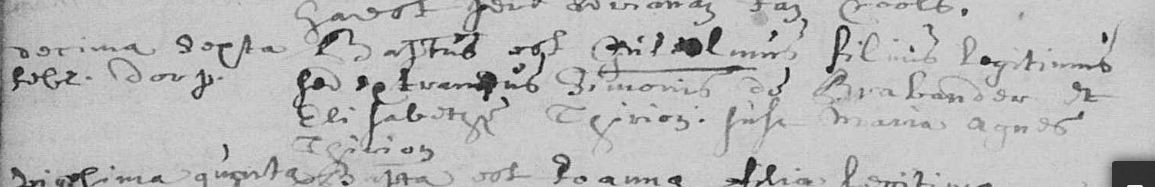 decima sexta Baptus est Guilolmus filius legitimus
febr. Dorp. sed extraneus Simonis de Brabander et
Elisabethæ Thirion. susc Maria Agnes
Thirion
vigesima quinta Bapta est Joanna filia legitima